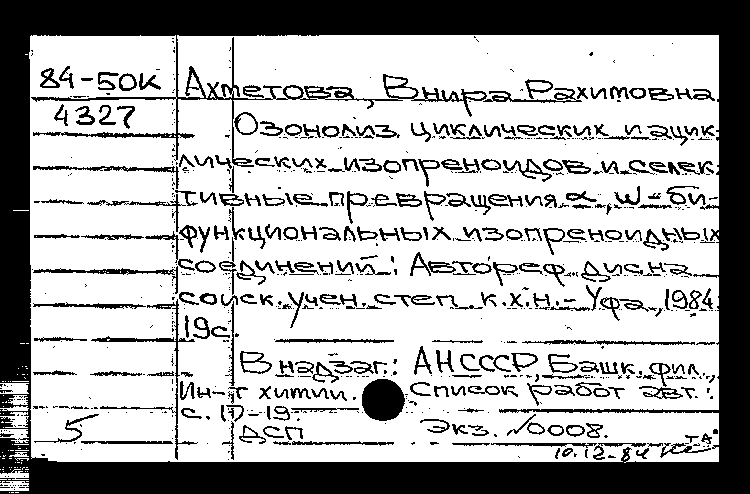 84-50К Ахметова, Внира Рахимовна
4327 Озонолиз циклических и ацик-
лических изопреноидов и селек-
тивные превращения α, ω-би-
функциональных изопреноидных
соединений : Автореф. дис. на
соиск. учен. степ. к.х.н. - Уфа, 1984.
19с.
В надзаг.: АН СССР, Башк. фил.,
Ин-т химии. Список работ авт.:
с. 17-19.
5 ДСП Экз. №0008.
10.12-84